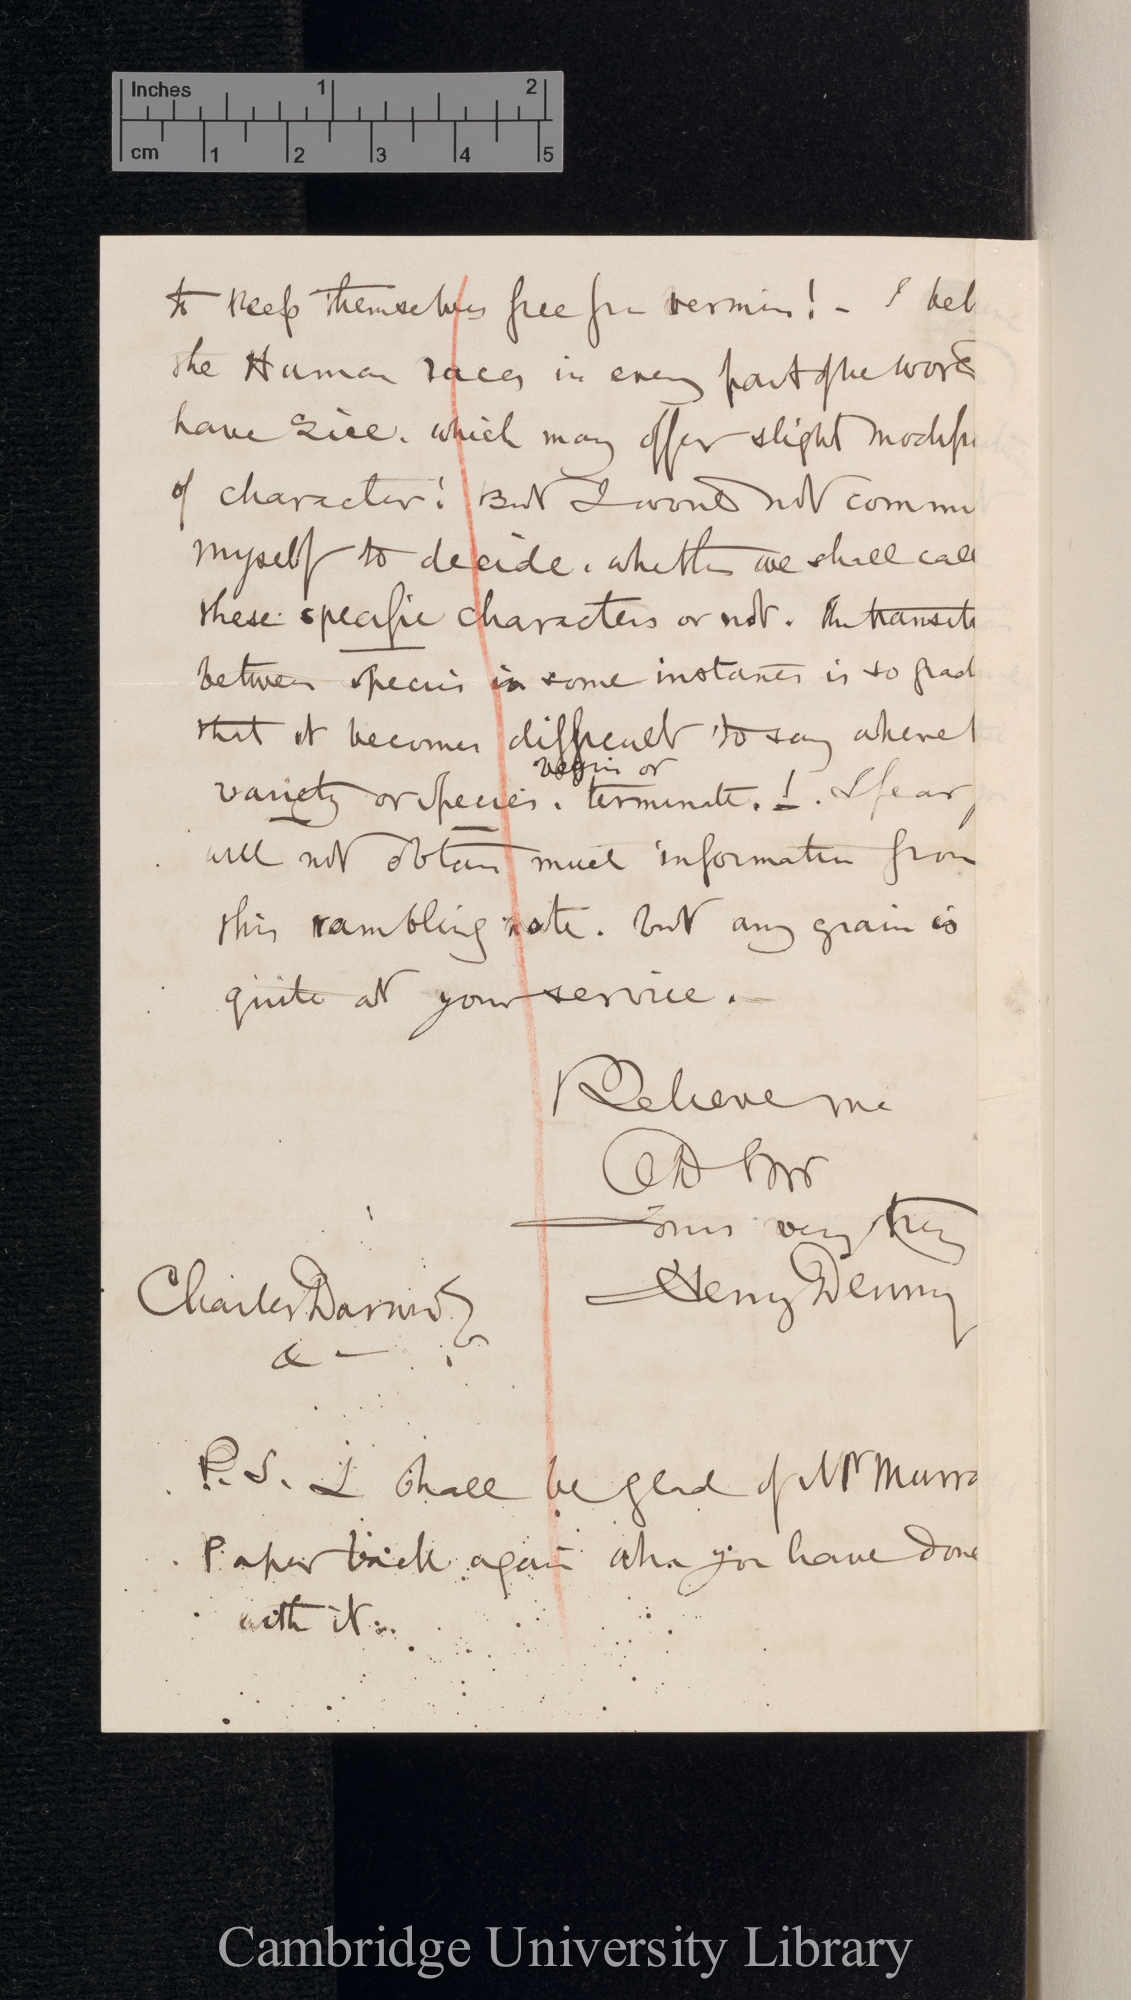 Inches 1 2
cm 1 2 3 4 5
to keep themselves free from vermin! - I bel
the Human races in every part of the world
have Lice. which may offer slight modifi
of character! But I would not commi
myself to decide. whether we shall call
these specific characters or not. The transiti
between species in some instances is so grad
that it becomes difficult to say where t
begin or
variety or species. terminate. ! . I fear y
will not obtain much information from
this rambling note. but any grain is
quite at your service. -
Believe me
Dr Sir
Yours very truly
Henry Denny
Charles Darwin
& -
P.S. I shall be glad of Mr Murra
Paper back again when you have done
with it.
Cambridge University Library